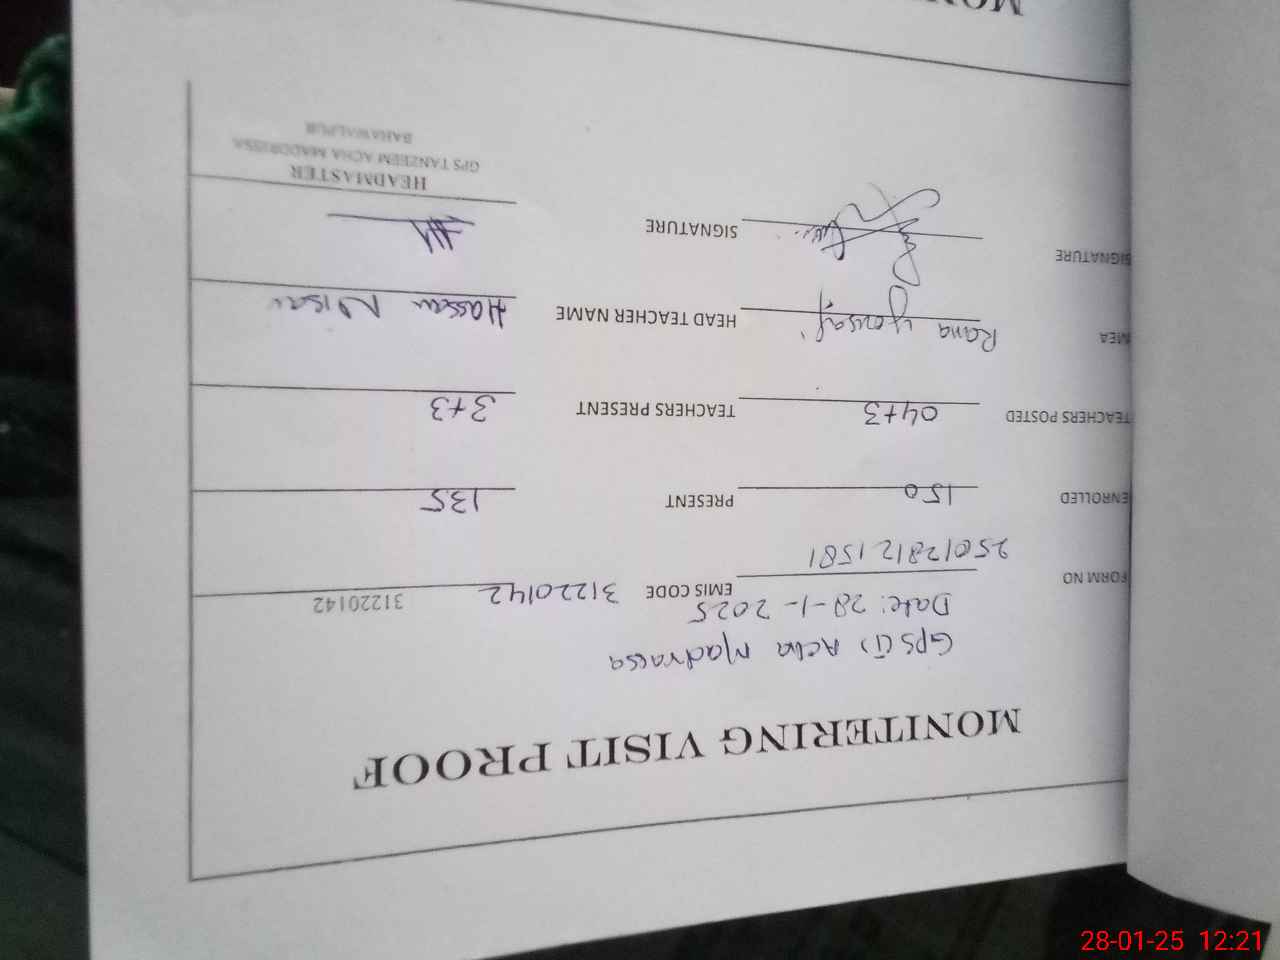 MONITERING VISIT PROOF
GPS (i) Acha Madrassa
Date: 28-1-2025
FORM NO 250128121581 EMIS CODE 31220142 31220142
ENROLLED 150 PRESENT 135
TEACHERS POSTED 04+3 TEACHERS PRESENT 3+3
MEA Rana yousaf HEAD TEACHER NAME Hassan Nisar
SIGNATURE SIGNATURE
HEADMASTER
GPS TANZEEM ACHA MADDRISSA
BAHAWALPUR
28-01-25 12:21